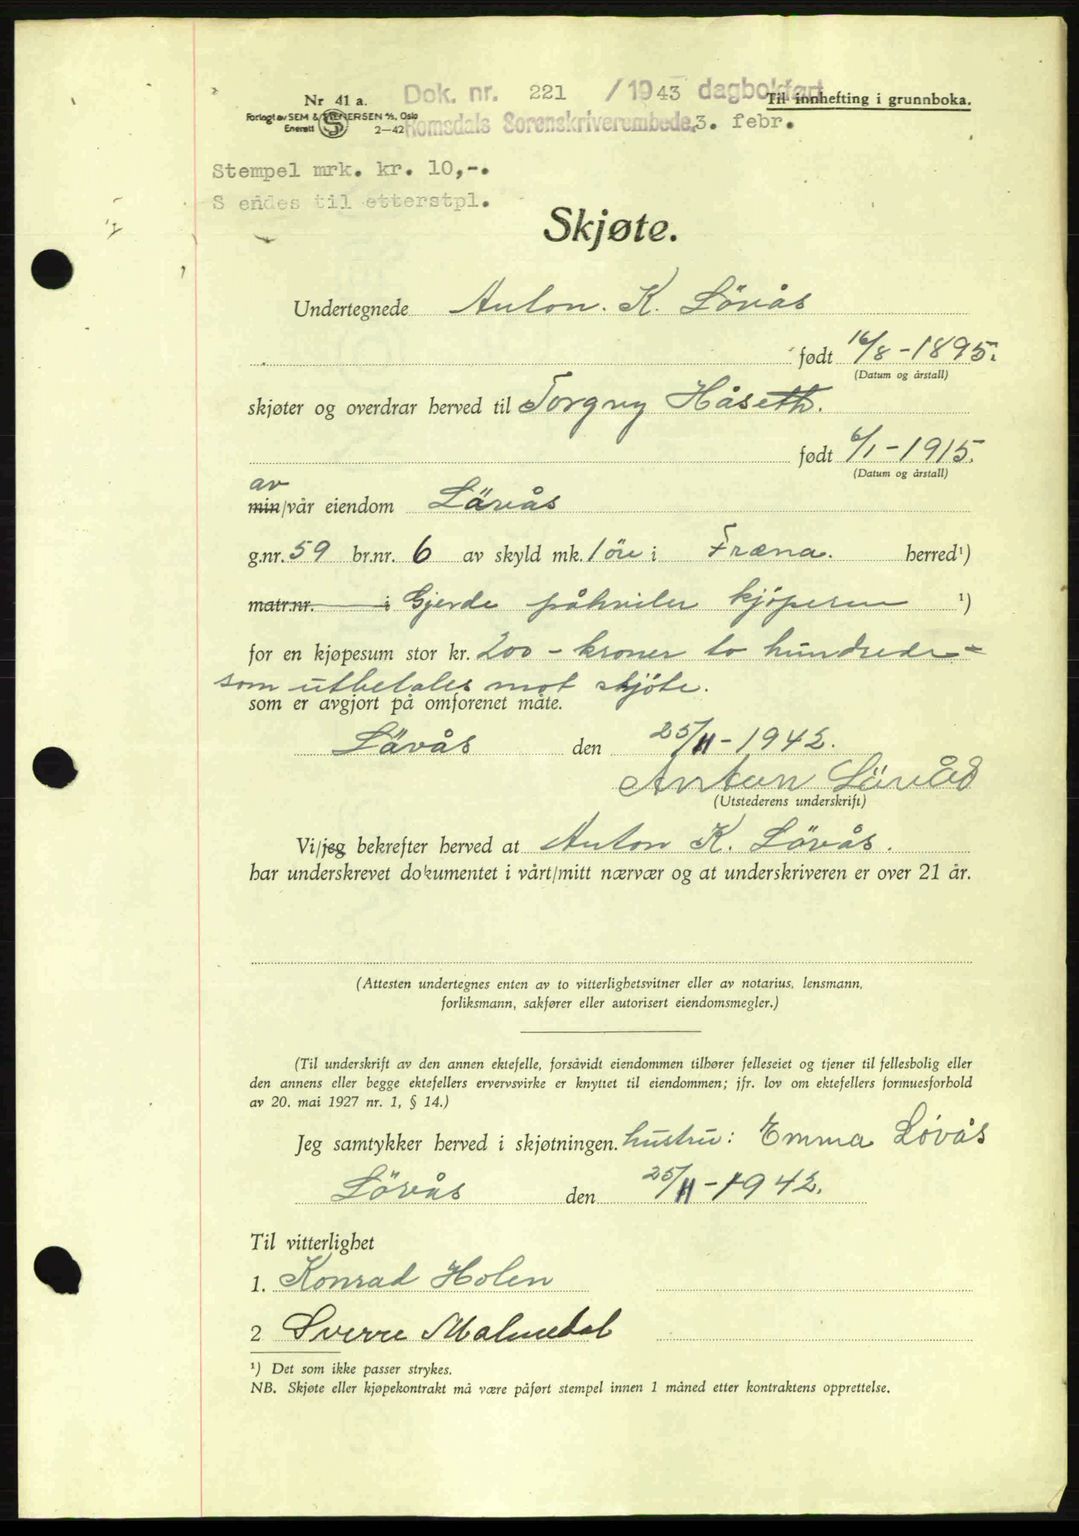 Nr 41 a.
Dok. nr. 221 / 1943 dagbokført
Til innhefting i grunnboka.
Forlagt av SEM & STENERSEN A/S, Oslo
Enerett S 2—42
Romsdals Sorenskriverembede, 3. febr.
Stempel mrk. kr. 10,-.
S endes til etterstpl.
Skjøte.
Undertegnede Anton. K. Lövås
født 16/8-1895.
(Datum og årstall)
skjøter og overdrar herved til Torgny Håseth.
født 6/1-1915.
(Datum og årstall)
av
min/vår eiendom Lövås
g.nr. 59 br.nr. 6 av skyld mk. 1 öre i Fræna. herred¹)
matr.nr. i Gjerde påhviler kjöperen ¹)
for en kjøpesum stor kr. 200 - kroner to hundrede -
som utbetales mot skjöte.
som er avgjort på omforenet måte.
Lövås den 25/11-1942.
Anton Lövås
(Utstederens underskrift)
Vi/jeg bekrefter herved at Anton K. Lövås.
har underskrevet dokumentet i vårt/mitt nærvær og at underskriveren er over 21 år.
(Attesten undertegnes enten av to vitterlighetsvitner eller av notarius, lensmann,
forliksmann, sakfører eller autorisert eiendomsmegler.)
(Til underskrift av den annen ektefelle, forsåvidt eiendommen tilhører felleseiet og tjener til fellesbolig eller
den annens eller begge ektefellers ervervsvirke er knyttet til eiendommen; jfr. lov om ektefellers formuesforhold
av 20. mai 1927 nr. 1, § 14.)
Jeg samtykker herved i skjøtningen. hustru: Emma Lövås
Lövås den 25/11-1942.
Til vitterlighet
1. Konrad Holen
2 Sverre Malmedal
¹) Det som ikke passer strykes.
NB. Skjøte eller kjøpekontrakt må være påført stempel innen 1 måned etter kontraktens opprettelse.